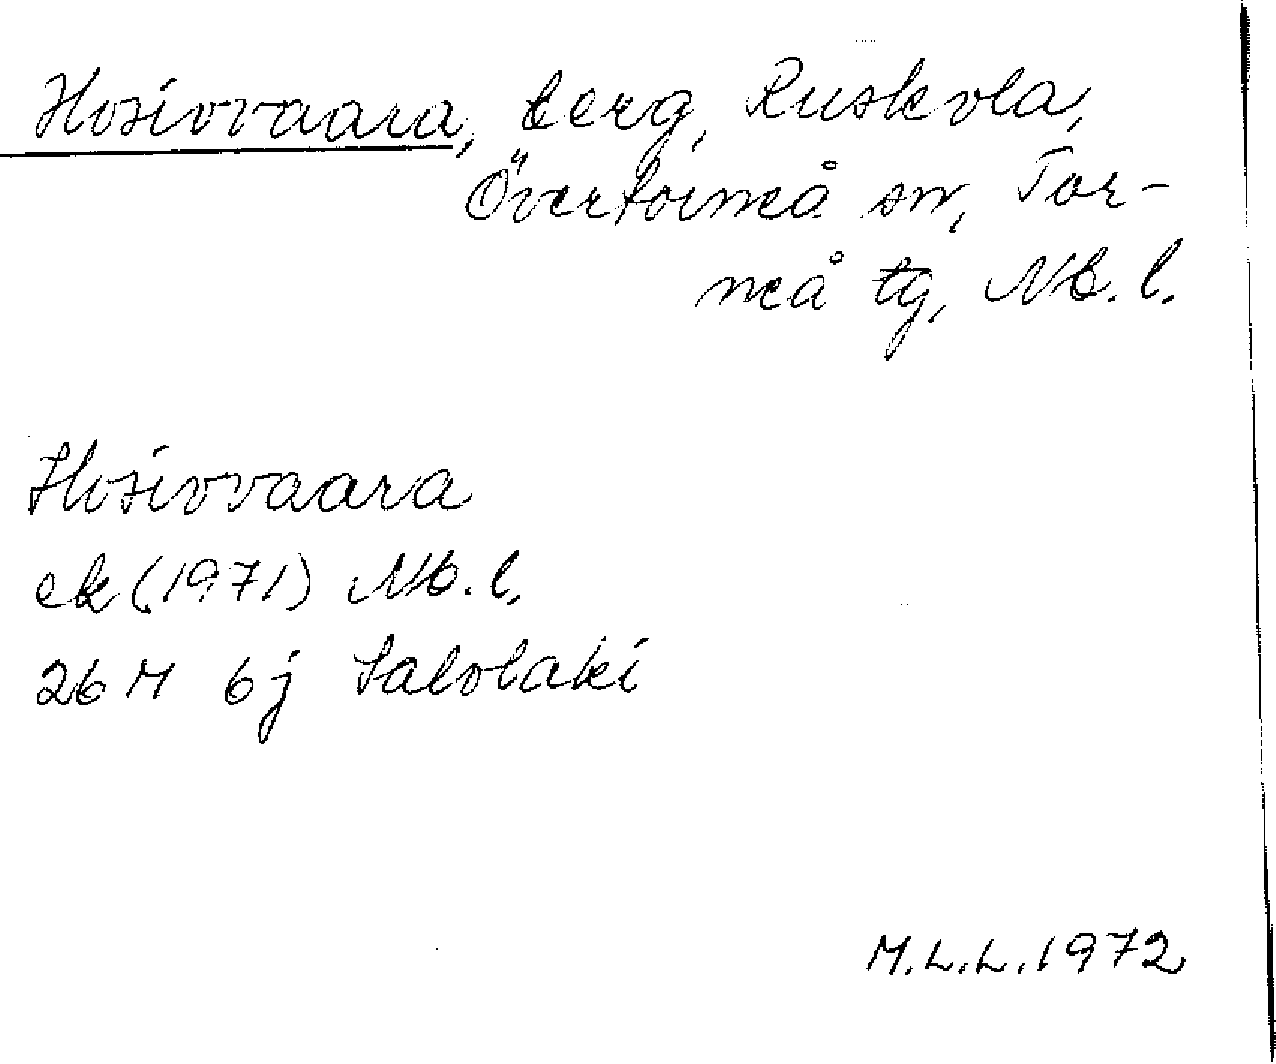 Hosiovaara, berg, Ruskola,
Övertorneå sn, Tor-
neå tg, Nb. l.
Hosiovaara
ek (1971) Nb. l.
26 M 6j Salolaki
M.L.L. 1972